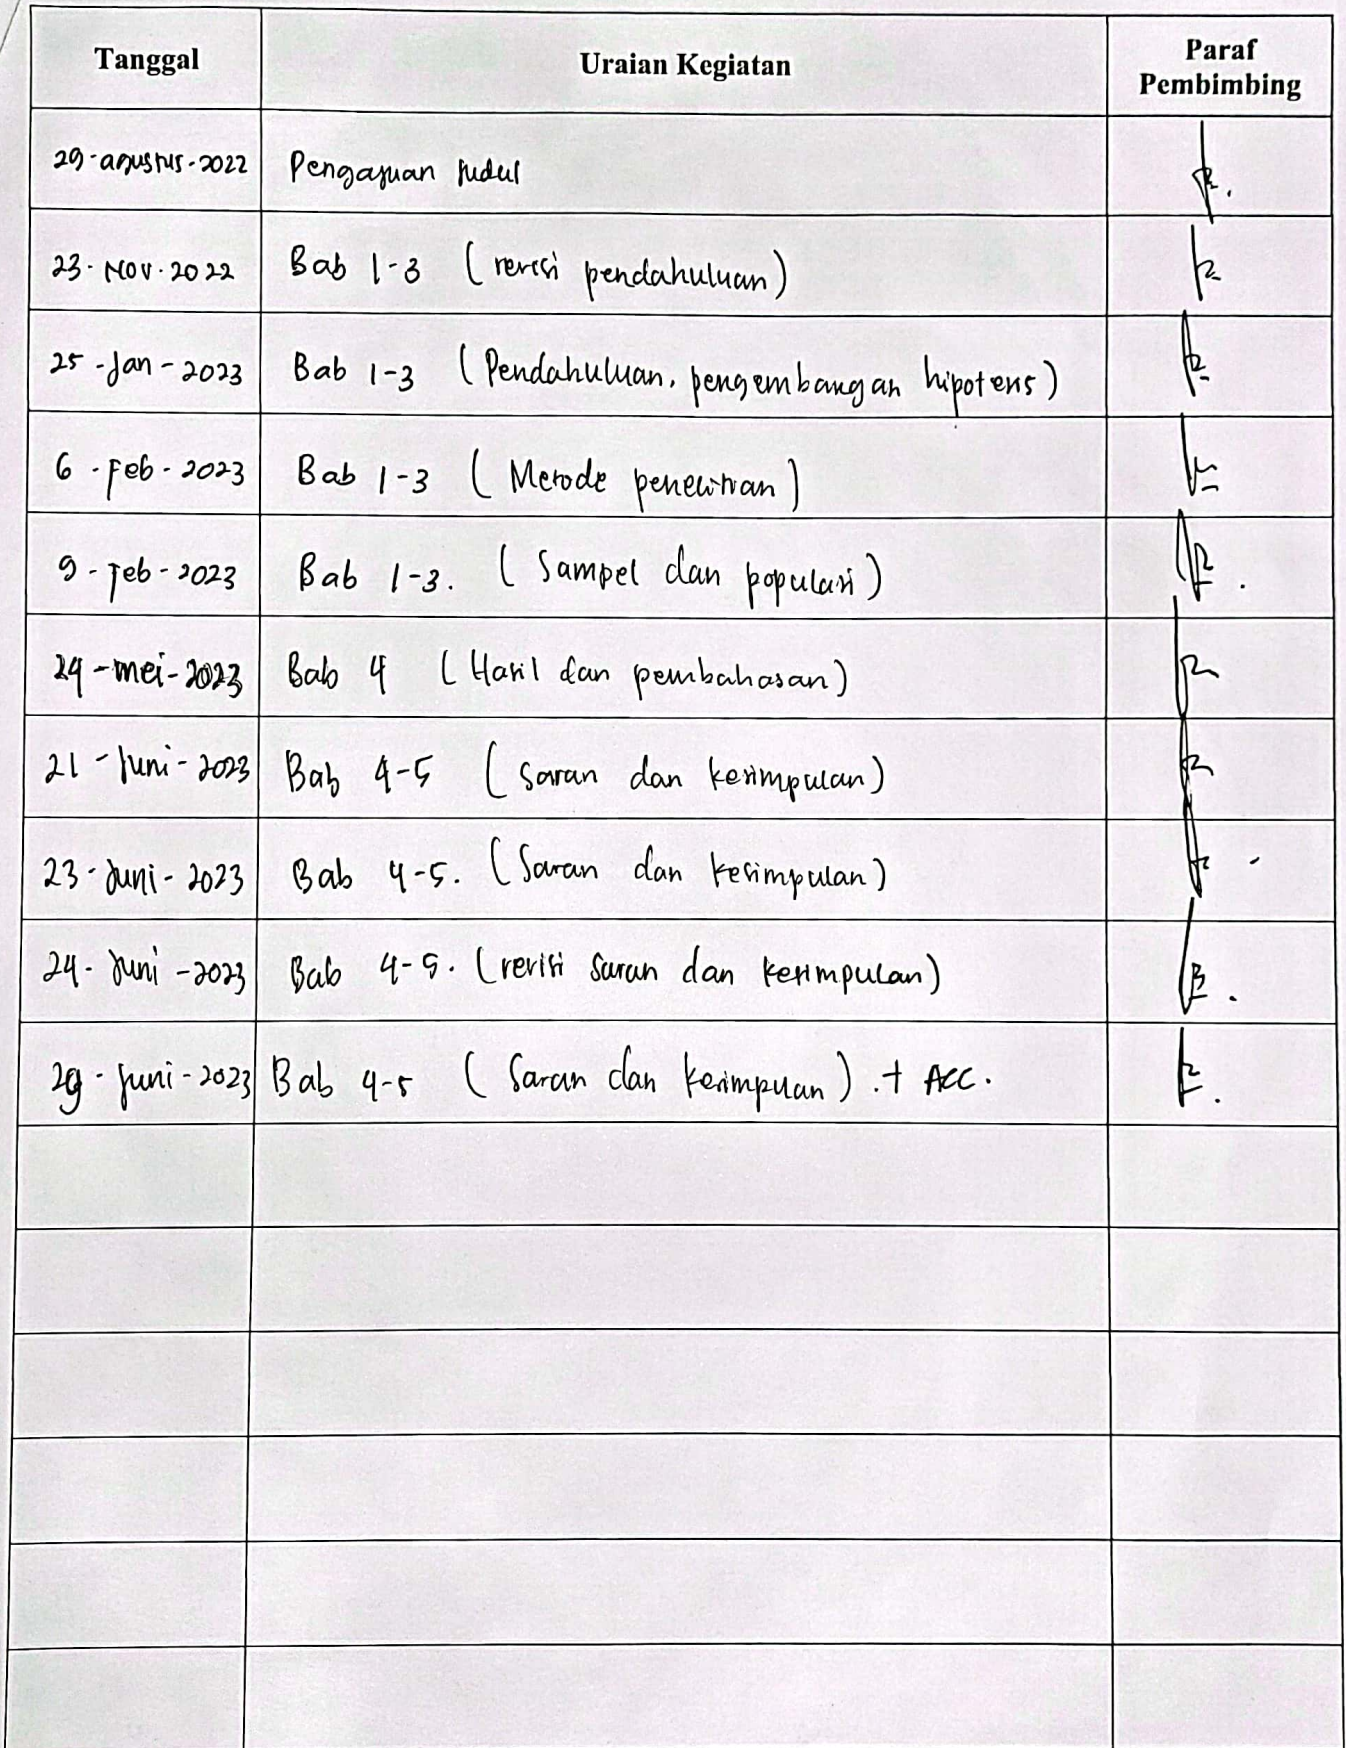 Tanggal Uraian Kegiatan Paraf Pembimbing
29-agustus-2022 Pengajuan Judul
23-Nov-2022 Bab 1-3 (revisi pendahuluan)
25-Jan-2023 Bab 1-3 (Pendahuluan, pengembangan hipotens)
6-Feb-2023 Bab 1-3 (Metode penelitian)
9-Feb-2023 Bab 1-3. (Sampel dan populasi)
24-mei-2023 Bab 4 (Hasil dan pembahasan)
21-Juni-2023 Bab 4-5 (saran dan kesimpulan)
23-Juni-2023 Bab 4-5. (Saran dan kesimpulan)
24-Juni-2023 Bab 4-5. (revisi saran dan kesimpulan)
29-Juni-2023 Bab 4-5 (Saran dan kesimpuan).+ ACC.